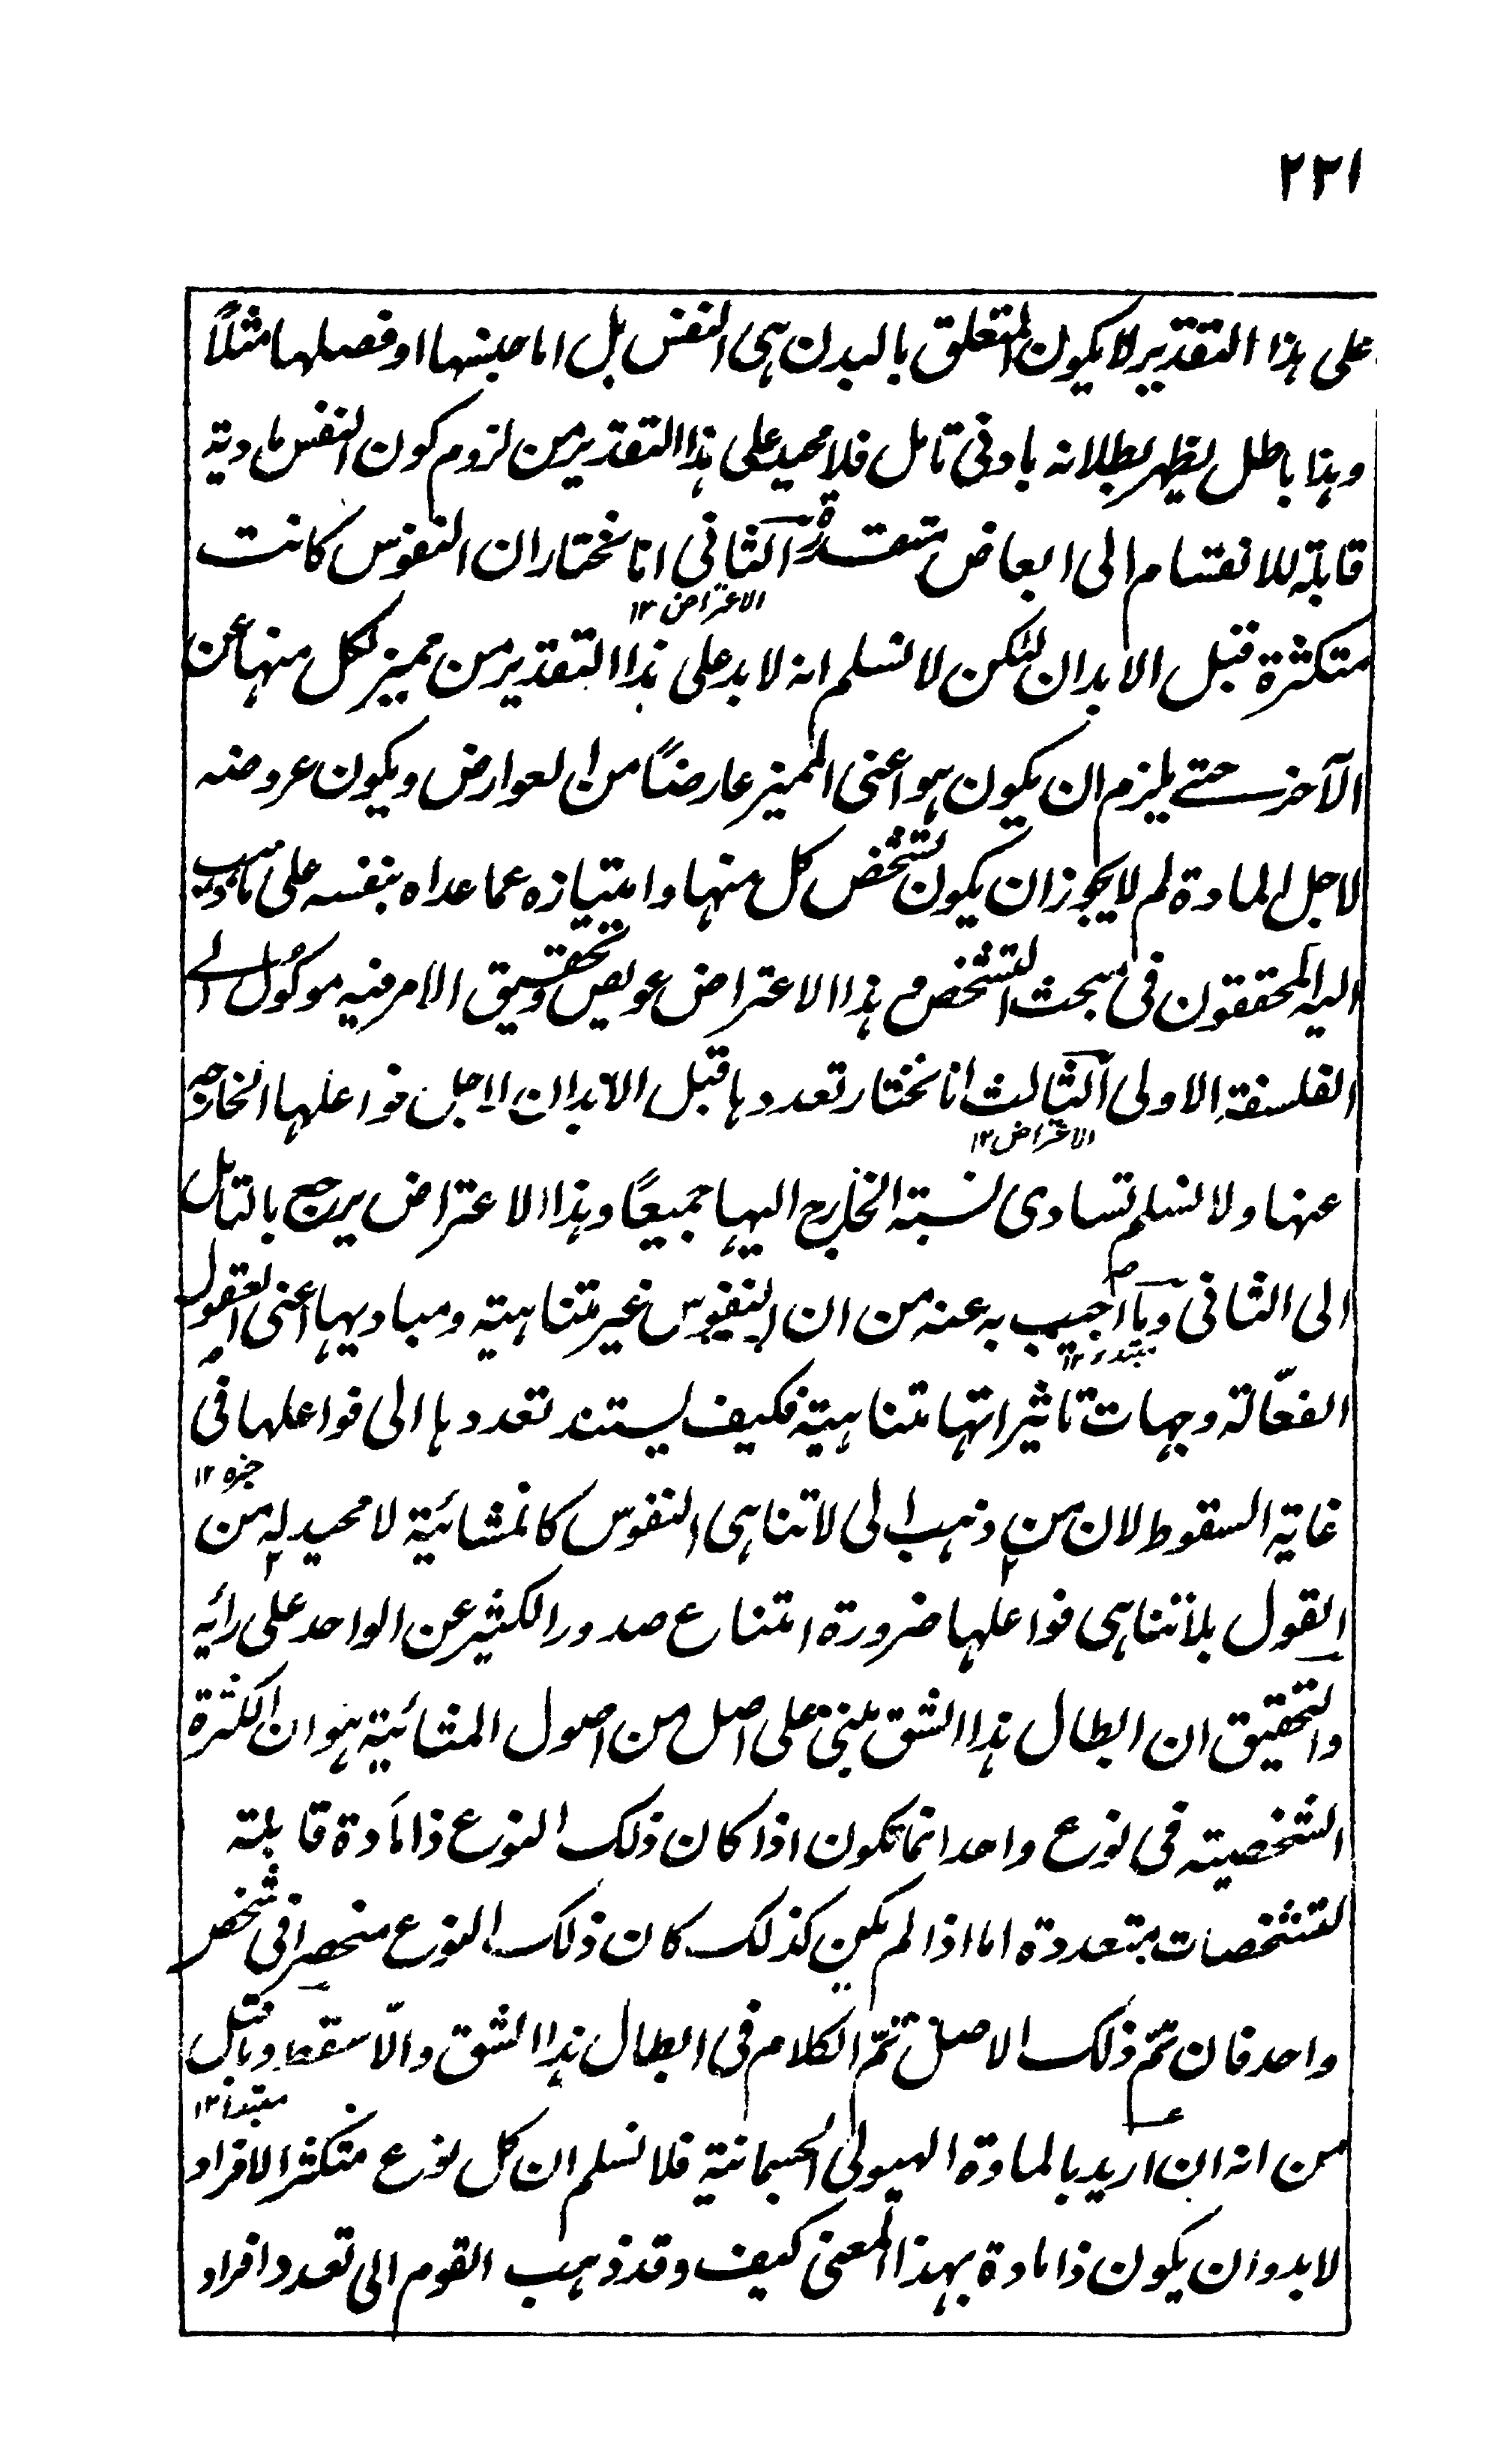 ٢٣١
على هذا التقدير لا يكون المتعلق بالبدن هى النفس بل اما جنسها او فصلها مثلاً
وهذا باطل يظهر بطلانه بادنى تامل فلا محيد على هذا التقدير من لزوم كون النفس مادية
قابلة للانقسام الى ابعاض متقدرة الثانى انا نختار ان النفوس كانت
الاعتراض ١٢
متكثرة قبل الابدان لكن لا نسلم انه لا بد على هذا التقدير من مميز لكل منها عن
الآخر حتى يلزم ان يكون هو اعنى المميز عارضاً من العوارض ويكون عروضه
لاجل المادة لم لا يجوز ان يكون تشخص كل منها وامتيازه عما عداه بنفسه على ما ذهب
اليه المحققون فى مبحث التشخص وهذا الاعتراض عويص وتحقيق الامر فيه موكول الى
الفلسفة الاولى الثالث انا نختار تعددها قبل الابدان لاجل فواعلها الخارجة
الاعتراض ١٢
عنها ولا نسلم تساوى نسبة الخارج اليها جميعًا وهذا الاعتراض يرجع بالتامل
الى الثانى وما اجيب به عنه من ان النفوس غير متناهية ومباديها اعنى العقول
مبتدء ١٢
الفعّالة وجهات تاثيراتها متناهية فكيف يستند تعددها الى فواعلها فى
خبره ١٢
غاية السقوط لان من ذهب الى لا تناهى النفوس كالمشائية لا محيد له من
القول بلا تناهى فواعلها ضرورة امتناع صدور الكثير عن الواحد على رائه
والتحقيق ان ابطال هذا الشق مبنى على اصل من اصول المشائية هو ان الكثرة
الشخصية فى نوع واحد انما تكون اذا كان ذلك النوع ذا مادة قابلة
لتشخصات متعددة اما اذا لم يكن كذلك كان ذلك النوع منحصرا فى شخص
واحد فان تمّ ذلك الاصل تمّ الكلام فى ابطال هذا الشق والّا سقط وما قيل
مبتدا ١٢
من انه ان اريد بالمادة الهيولى الجسمانية فلا نسلم ان كل نوع متكثر الافراد
لا بد وان يكون ذا مادة بهذا المعنى كيف وقد ذهب القوم الى تعدد افراد